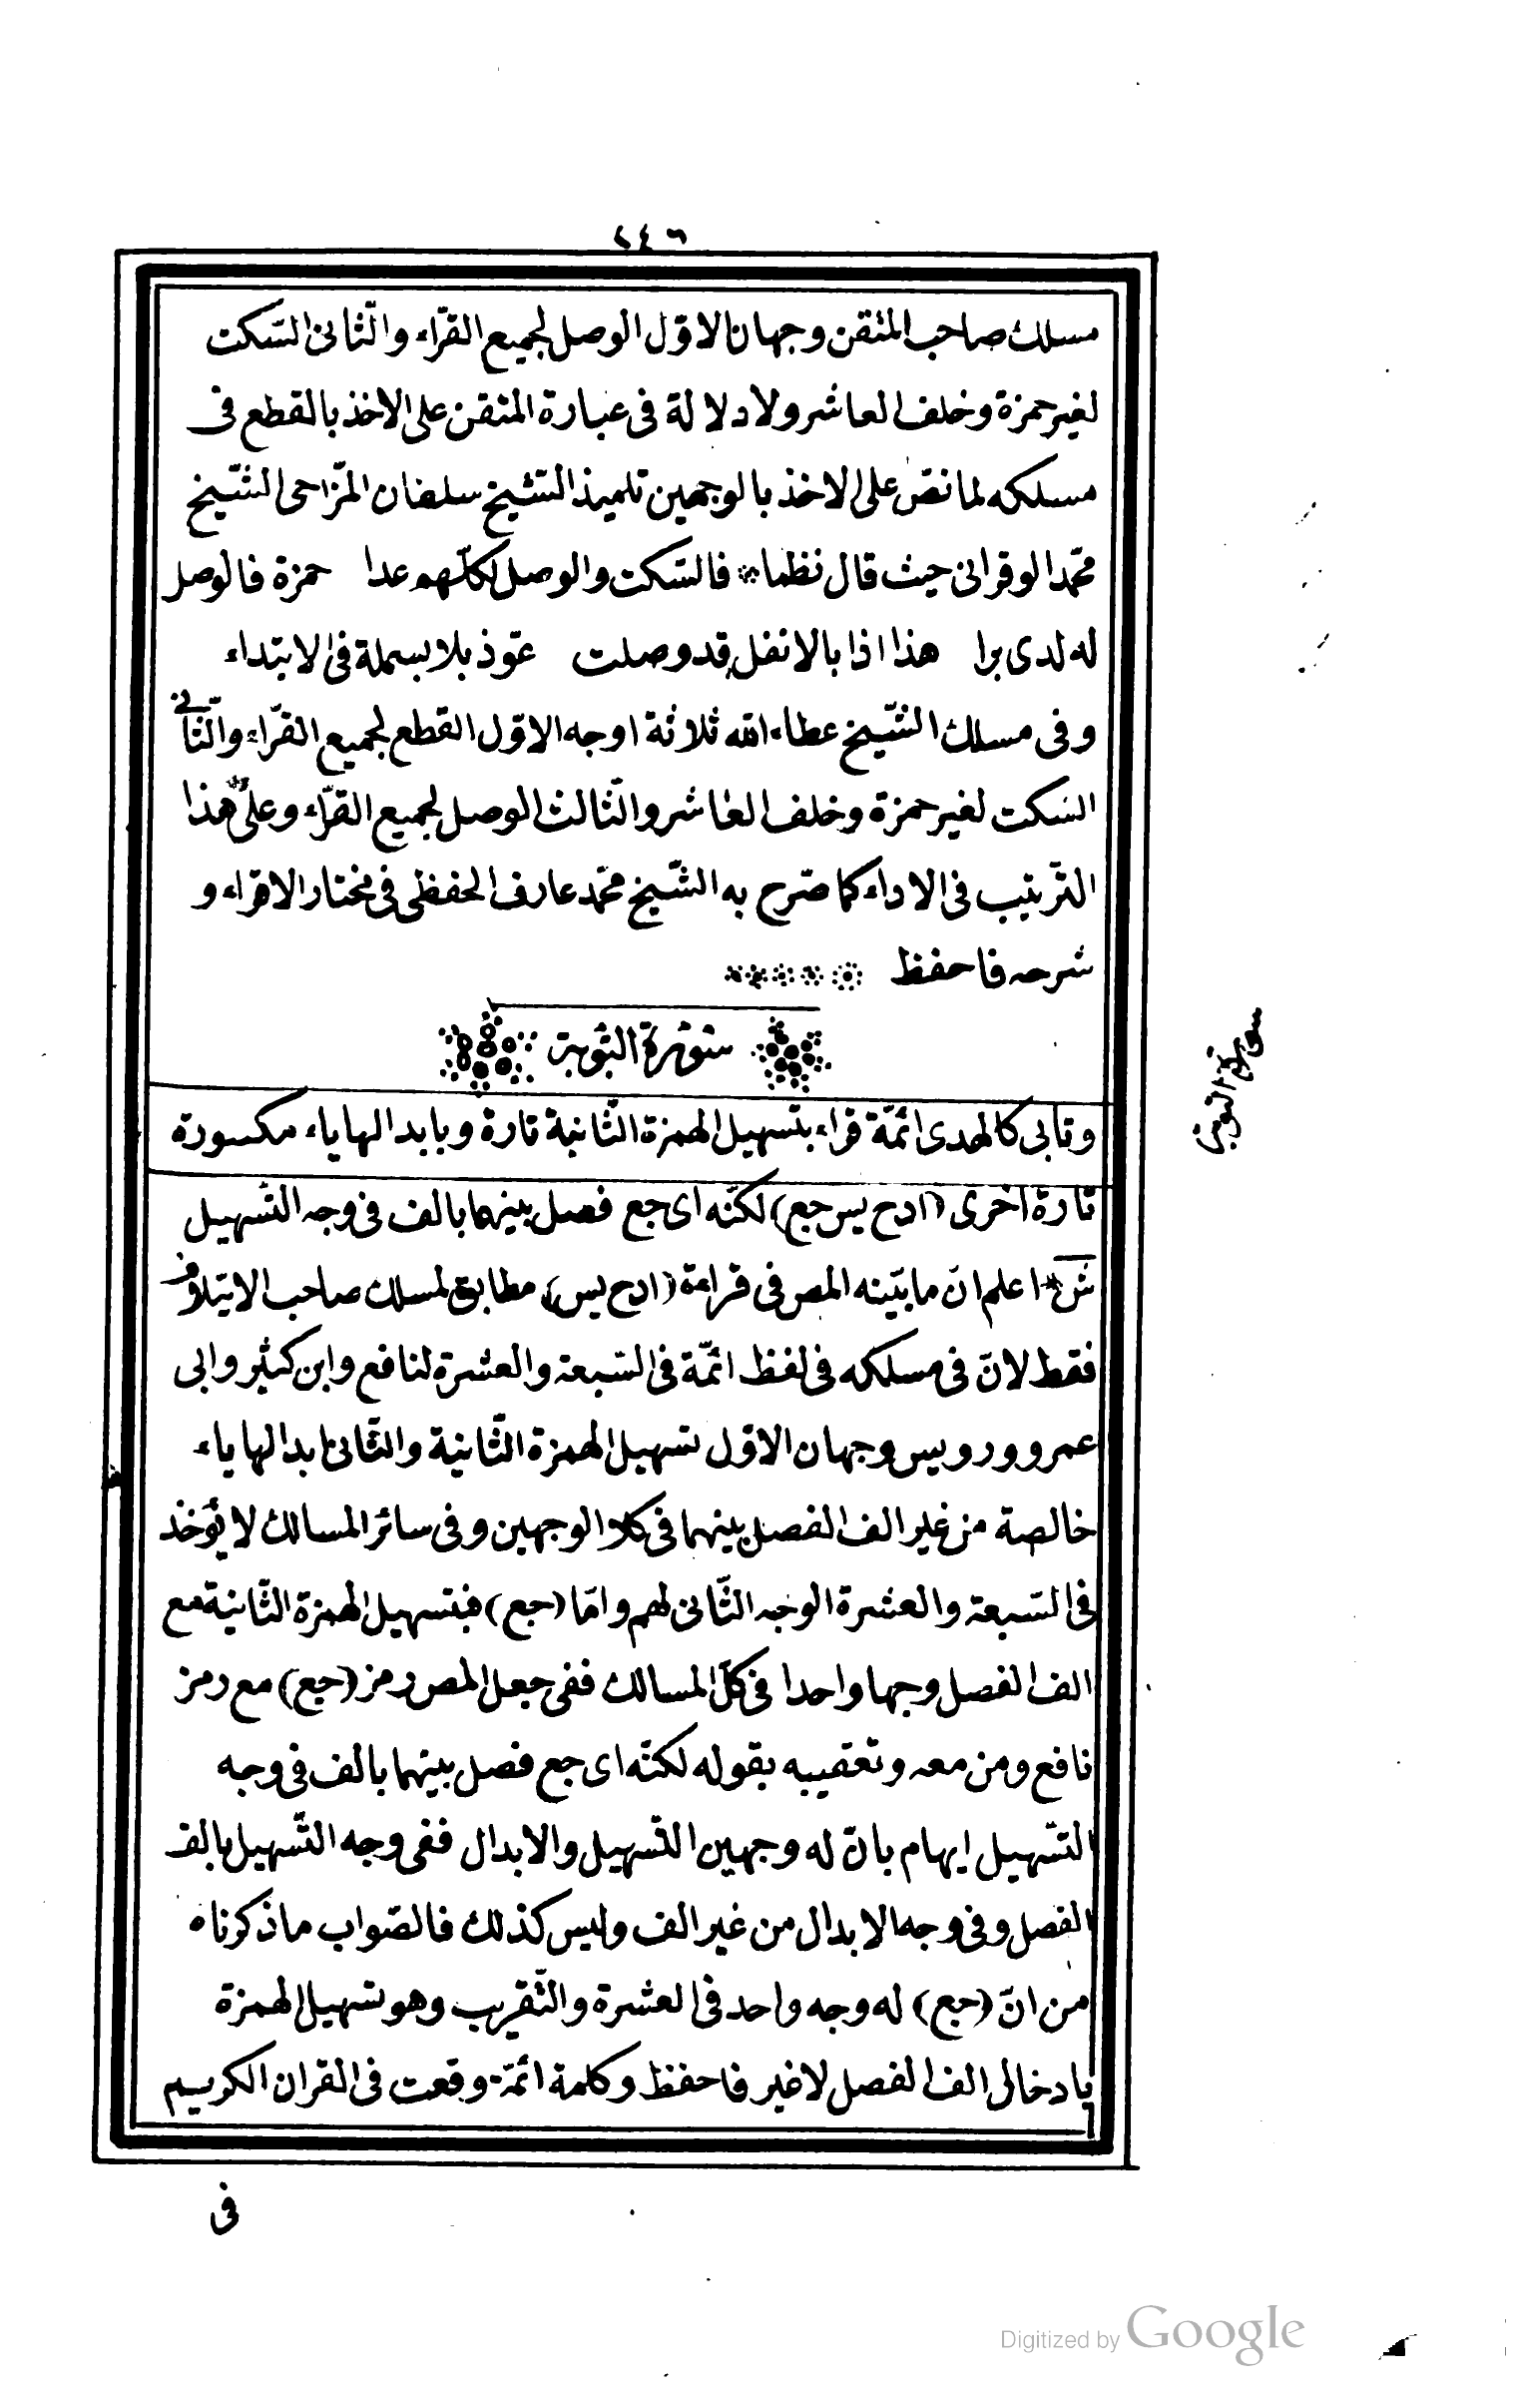 ٢٤٦
مسلك صاحب المتقن وجهان الاوّل الوصل لجميع القرّاء والثّانى السّكت
لغير حمزة وخلف العاشر ولا دلالة فى عبارة المتقن على الاخذ بالقطع فى
مسلكه لما نصّ على الاخذ بالوجهين تلميذ الشّيخ سلطان المزّاحى الشّيخ
محمّد الوقرانى حيث قال نظما فالسّكت والوصل لكلّهم عدا حمزة فالوصل
له لدى برا هذا اذا بالانفل قد وصلت عوّذ بلا بسملة فى الابتداء
وفى مسلك الشّيخ عطاء الله ثلاثة اوجه الاوّل القطع لجميع القرّاء والثّانى
السّكت لغير حمزة وخلف العاشر والثّالث الوصل لجميع القرّاء وعلى هذا
التّرتيب فى الاداء كما صّرح به الشّيخ محمّد عارف الحفظى فى مختار الاقراء و
شرحه فاحفظ
سورة التوبة
سورة التوبة
وتابى كالهدى ائمّة قراء بتسهيل الهمزة الثّانية تارة وبابدالها ياء مكسورة
تارة اخرى (ادح يس جع) لكنّه اى جع فصل بينهما بالف فى وجه التّسهيل
ش اعلم انّ ما بيّنه المص فى قراءة (ادح يس) مطابق لمسلك صاحب الايتلاف
فقط لانّ فى مسلكه فى لفظ ائمّة فى السّبعة والعشرة لنافع وابن كثير وابى
عمرو ورويس وجهان الاوّل تسهيل الهمزة الثّانية والثّانى ابدالها ياء
خالصة من غير الف الفصل بينهما فى كلا الوجهين وفى سائر المسالك لا يؤخذ
فى السّبعة والعشرة الوجه الثّانى لهم وامّا (جع) فبتسهيل الهمزة الثّانية مع
الف الفصل وجها واحدا فى كلّ المسالك ففى جعل المص رمز (جع) مع رمز
نافع ومن معه وتعقيبه بقوله لكنّه اى جع فصل بينهما بالف فى وجه
التّسهيل ايهام بانّ له وجهين التّسهيل والابدال ففى وجه التّسهيل بالف
الفصل وفى وجه الابدال من غير الف وليس كذلك فالصّواب ما ذكرناه
من انّ (جع) له وجه واحد فى العشرة والتّقريب وهو تسهيل الهمزة
بادخال الف الفصل لا غير فاحفظ وكلمة ائمّة وقعت فى القران الكريم
فى
Digitized by Google